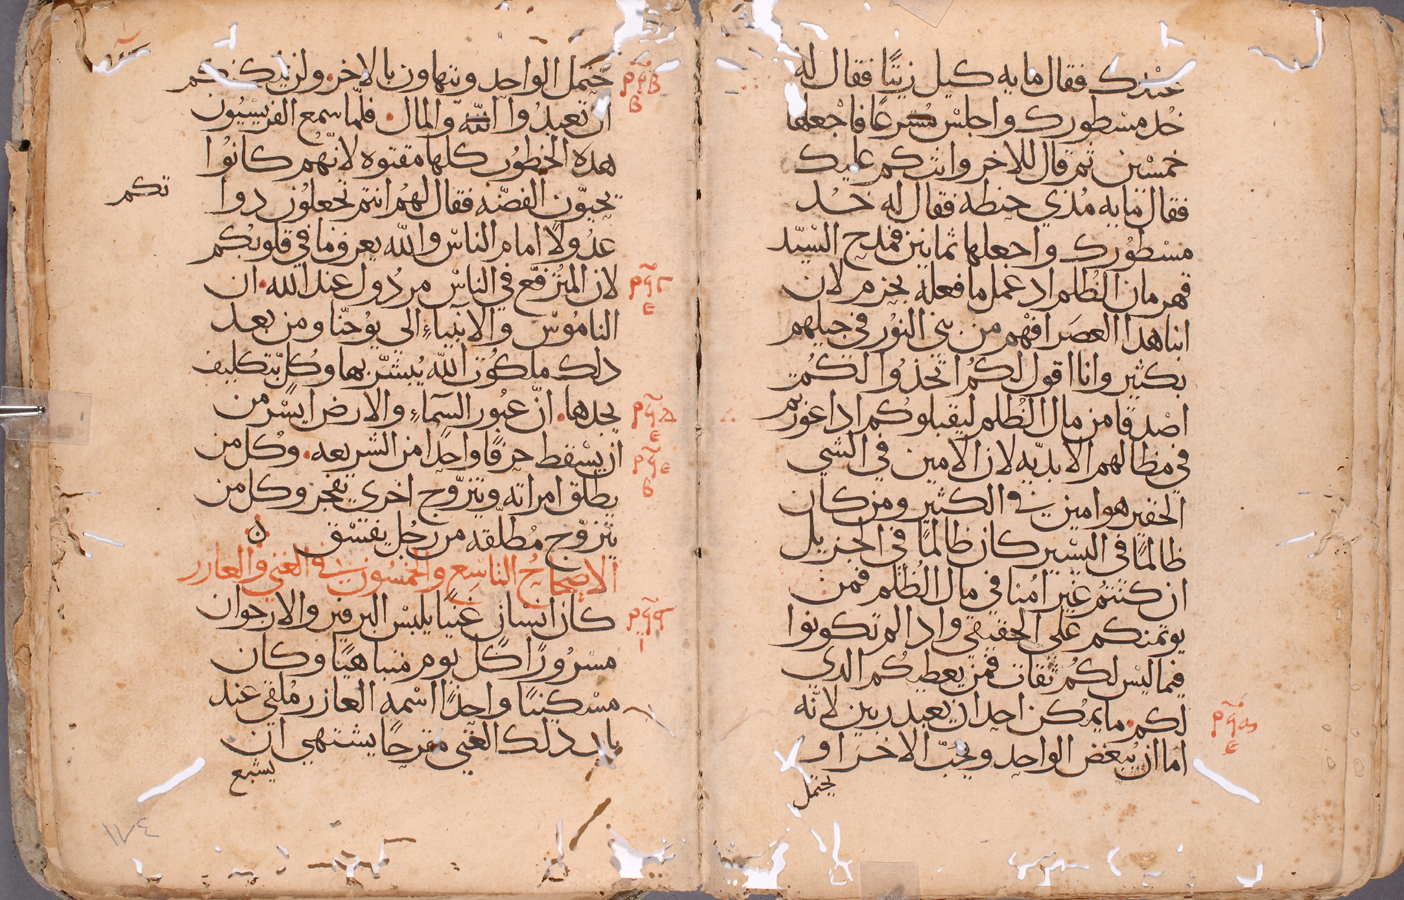 عندك فقال مايه كيل زيتًا فقال له
خد مسطورك واجلس مسرعًا فاجعلها
خمسين ثم قال للاخر وانت كم عليك
فقال مايه مُدي حنطه فقال له خد
مسطورك واجعلها ثمانين فمدح السيّد
قهرمان الظلم اد عمل ما فعله بحزم لان
ابنا هدا العصر افهم من بني النور في جيلهم
بكثير وانا اقول لكم اتخدوا لكم
اصدقا من مال الظلم ليقبلوكم ادا عوزتم
في مظالهم الابديّه لان الامين في الشي
الحقير هو امين في الكثير ومن كان
ظالمًا في اليسير كان ظالمًا في الجزيل
ان كنتم غير امنا في مال الظلم فمن
يوتمنكم على الحقيقي وادا لم تكونوا
فيما ليس لكم ثقات فمن يعطيكم الدى
لكم. ما يمكن احد ان يعبد ربين لانّه
اما ان يبغض الواحد ويحبّ الاخر او
يحتمل
ⲣϥ̄ⲅ
ⲉ
يحتمل الواحد ويتهاون بالاخر. ولن يمكنكم
ان تعبدوا اللّه والمال. فلمّا سمع الفريسيّون
هده الخطوب كلها مقتوه لانّهم كانُوا
يحبّون الفضّه فقال لهم انتم تجعلون دوا
تكم
عدُولًا امام النّاس واللّه يعرف ما في قلوبكم
لان المترفّع في الناس مردُول عند الله. ان
الناموس والانبياء الى يُوحنّا ومن بعد
دلك ملكُوت اللّه يُبشّر بها وكُلّ بتكليف
يجدها. انّ عبُور السّماء والارض ايسر من
ان يسقط حرفًا واحدًا من الشريعه. وكُل من
يطلق امراته ويتزوّج اخرى يفجر وكل من
يتزوّج مُطلّقه من رجُل يفسق
الاصحاحُ التاسع والخمسُون في الغني والعازر
كان انسان غنيًا يلبس البرفير والارجوان
مسرُورًا كُل يوم متباهيًا وكان
مسكينًا واحدًا اسمه العازر مُلقى عند
باب دلك الغنّي مقرحًا يشتهي ان
يشبع
١٧٤